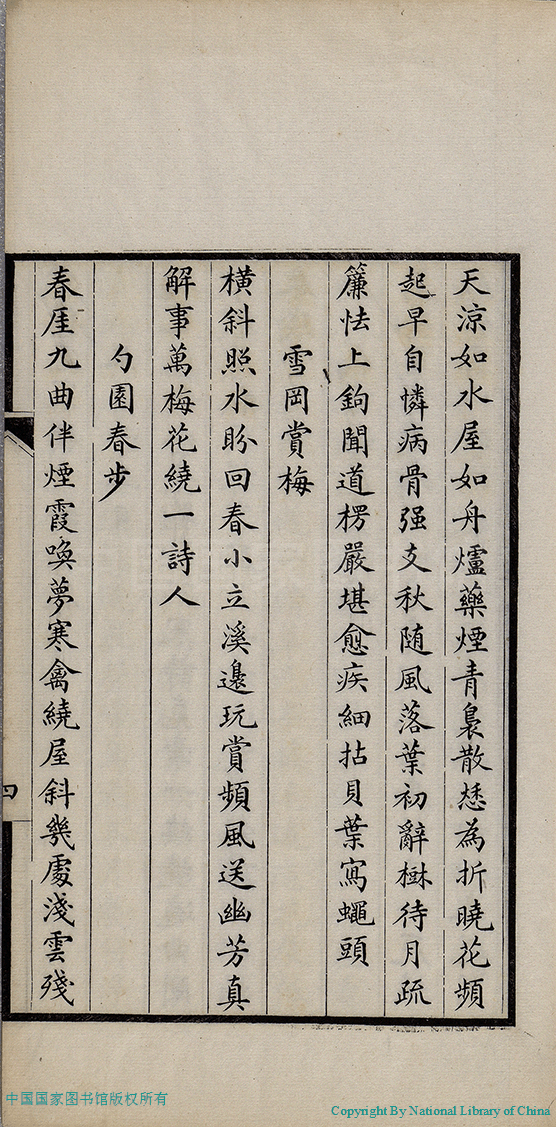 天涼如水屋如舟爐藥煙青裊散愁為折曉花頻
起早自憐病骨强支秋随風落葉初辭樹待月疏
簾怯上鉤聞道楞嚴堪愈疾細拈貝葉寫蠅頭
雪岡賞梅
橫斜照水盼回春小立溪邊玩賞頻風送幽芳真
解事萬梅花繞一詩人
勺園春步
春厓九曲伴煙霞喚夢寒禽繞屋斜幾處淺雲殘
四
中国国家图书馆版权所有
Copyright By National Library of China